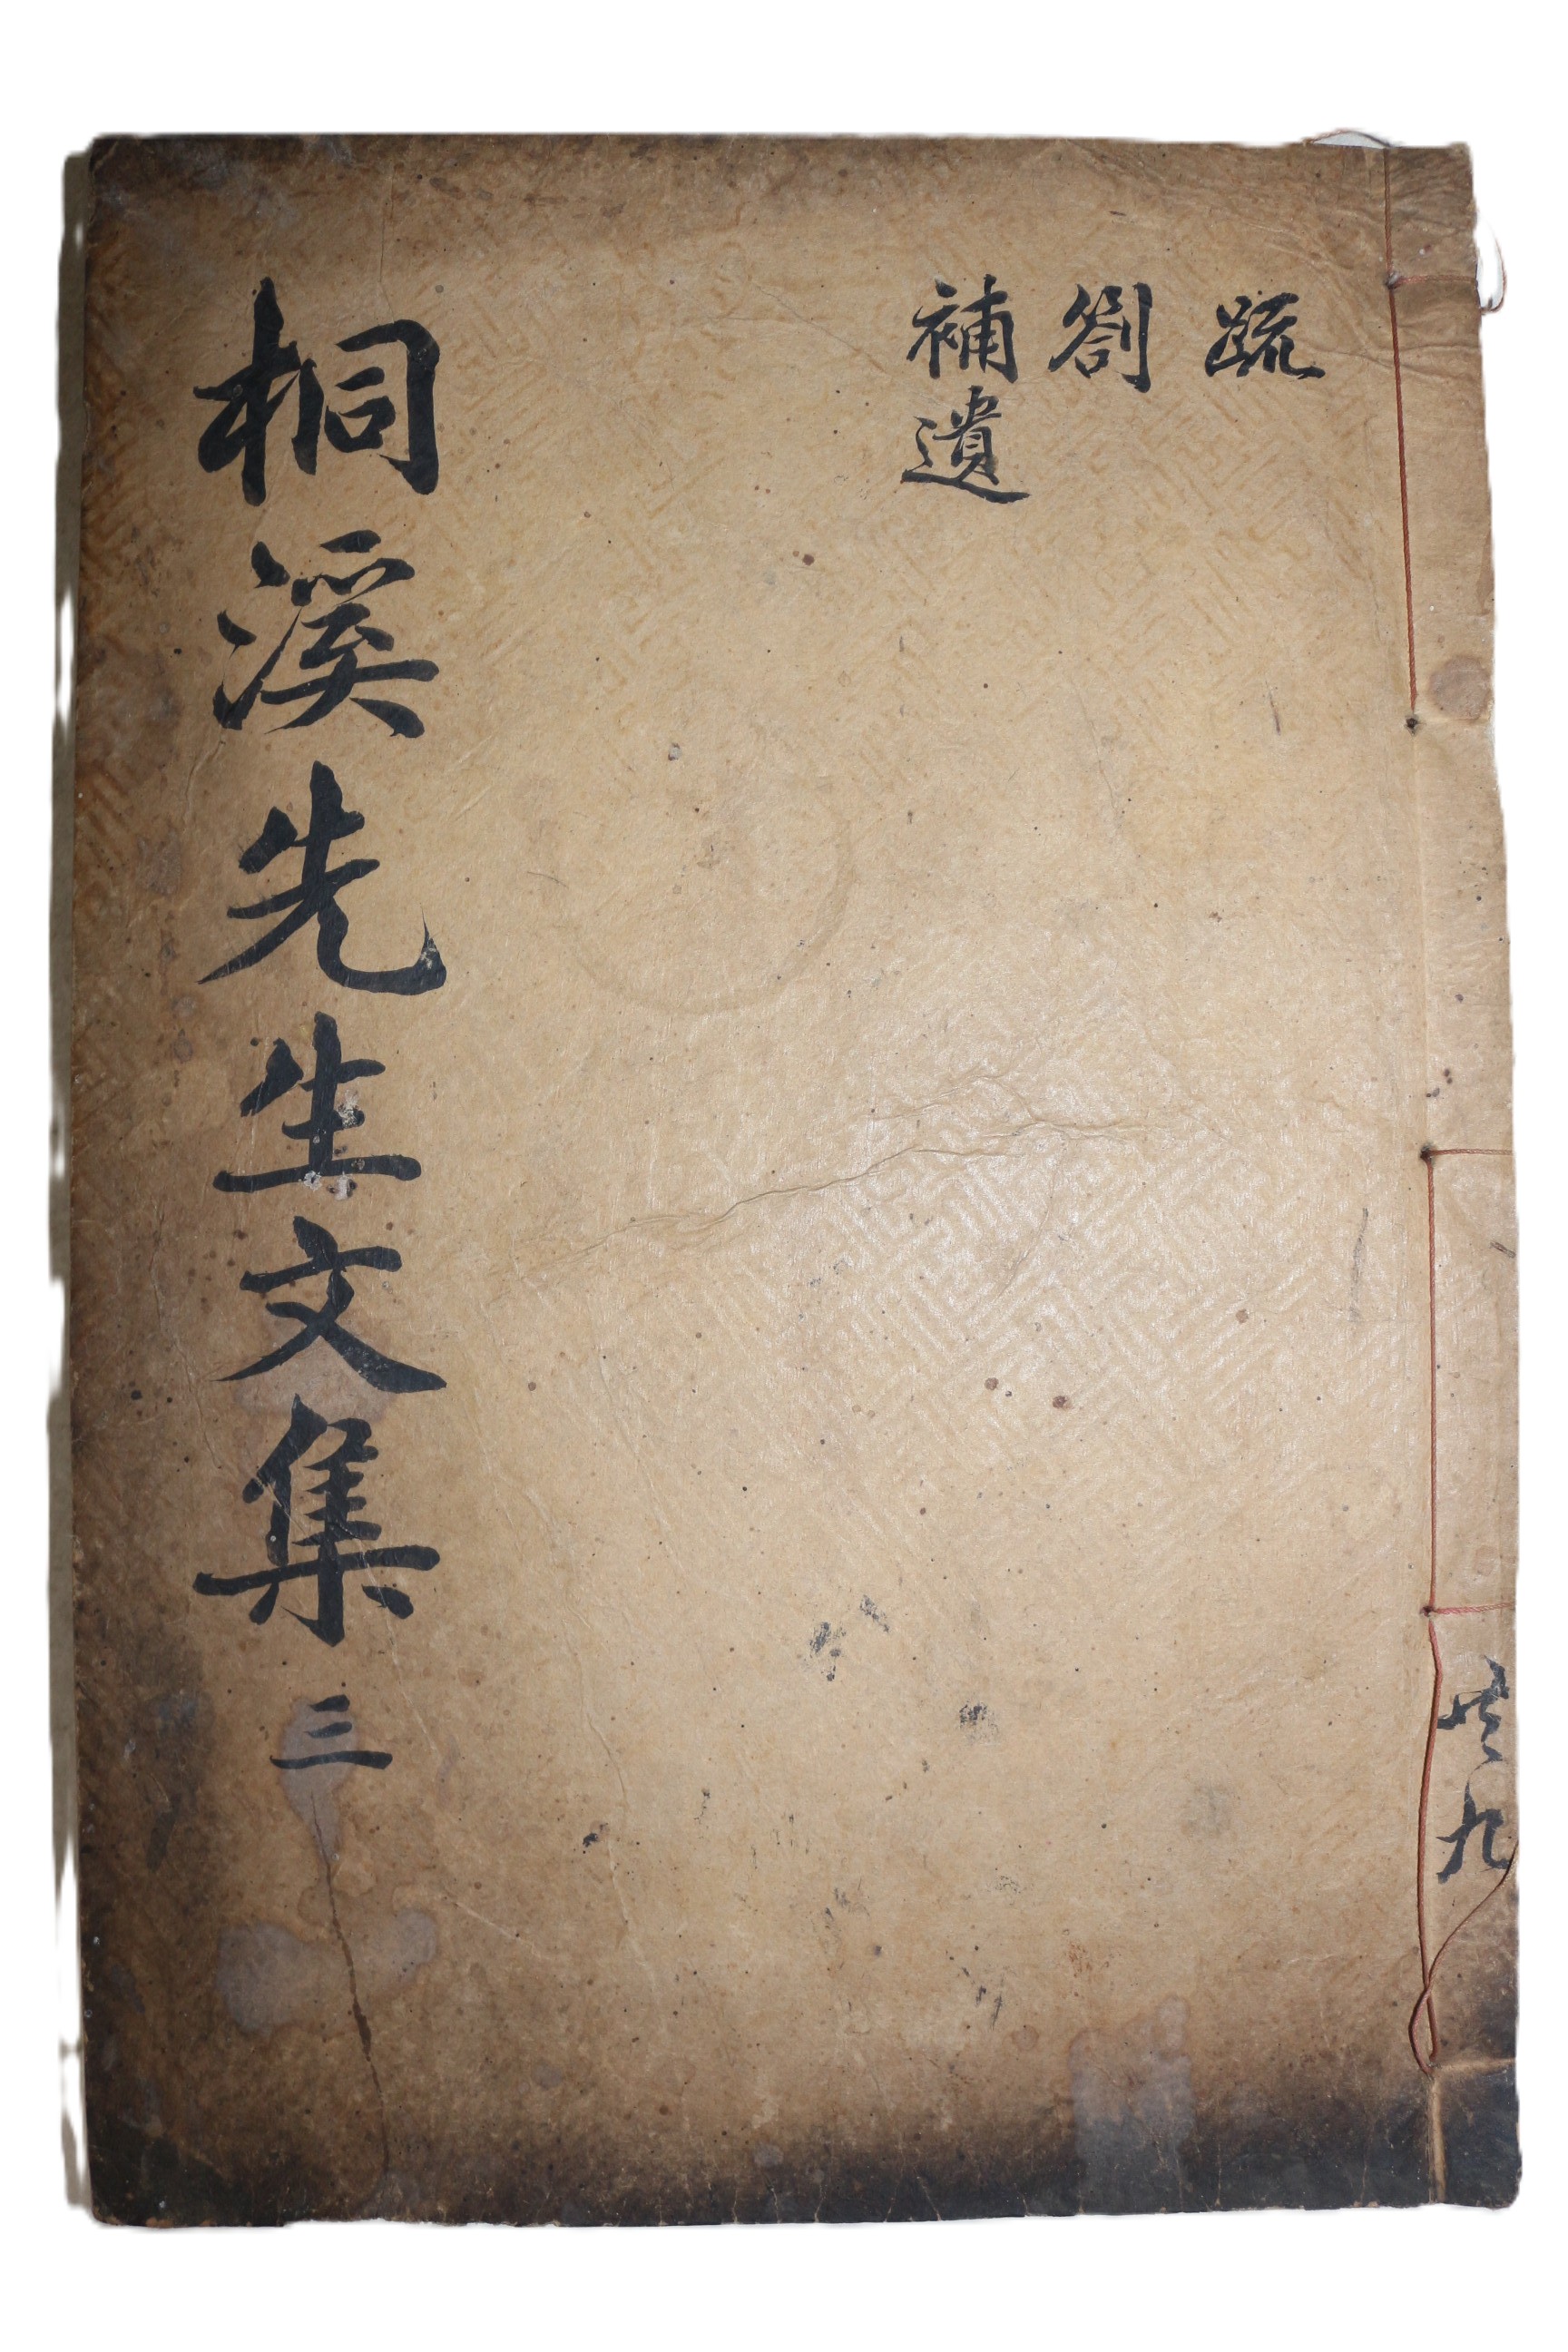 疏
劄
補遺
桐溪先生文集 三
共九